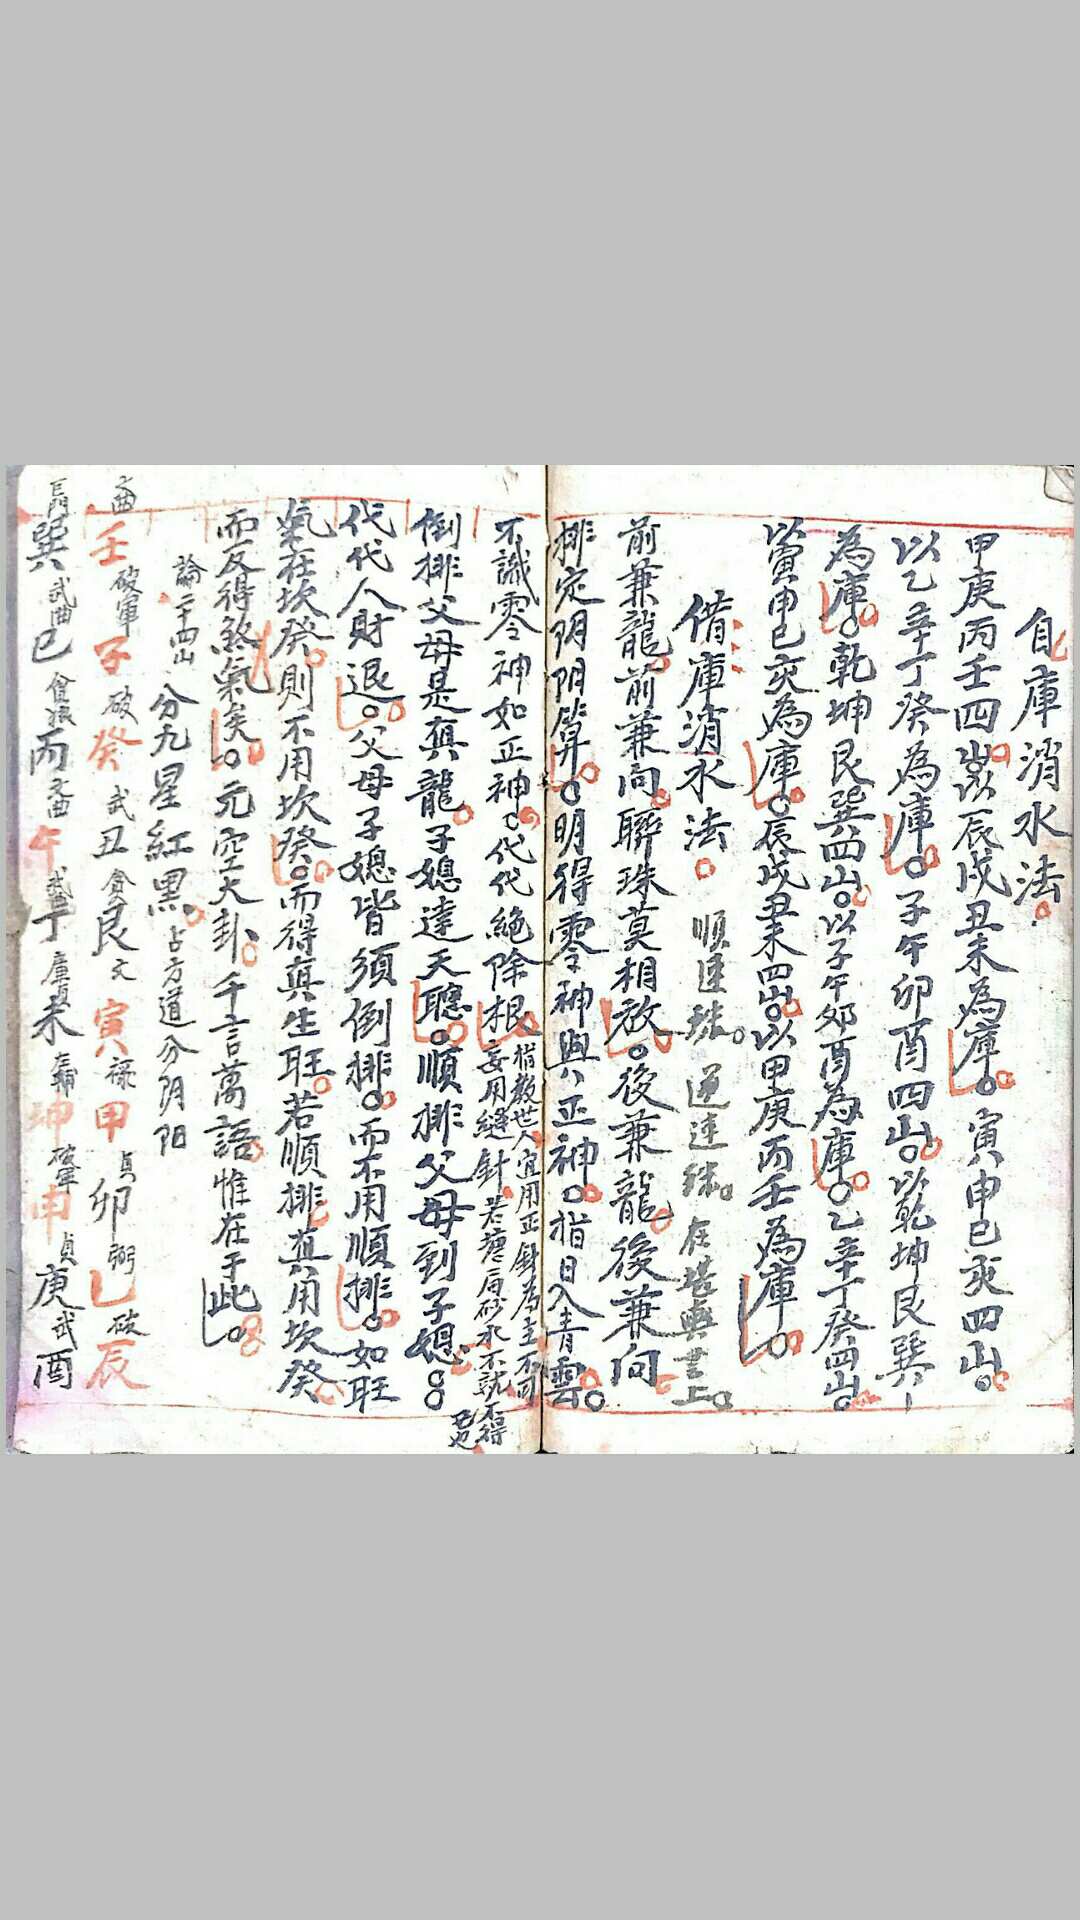 自庫消水法
甲庚丙壬四山以辰戌丑未為庫寅申巳亥四山
以乙辛丁癸為庫子午卯酉四山以乾坤艮巽
為庫乾坤艮巽四山以子午卯酉為庫乙辛丁癸四山
以寅申巳亥為庫辰戌丑未四山以甲庚丙壬為庫
借庫消水法 順連珠 逆連珠 在堪輿書上
前兼龍前兼向聯珠莫相放後兼龍後兼向
排定阴阳算明得零神與正神指日入青雲
不識零神如正神代代絶除根
指教世人宜用正針為主不可
妄用縫針若塘有砂水不就不得已也
倒排父母是真龍子媳達天聰順排父母到子媳
代代人財退父母子媳皆須倒排而不用順排如旺
氣在坎癸則不用坎癸而得真生旺若順排真用坎癸
而反得煞氣矣元空大卦千言萬語惟在于此
論二十四山分九星紅黑占方道分阴阳
文曲壬破軍子破癸武丑貪艮文寅祿甲貞卯弼乙破辰
巨門巽武曲巳貪狼丙文曲午丁廉貞未左輔坤破軍申貞庚武酉